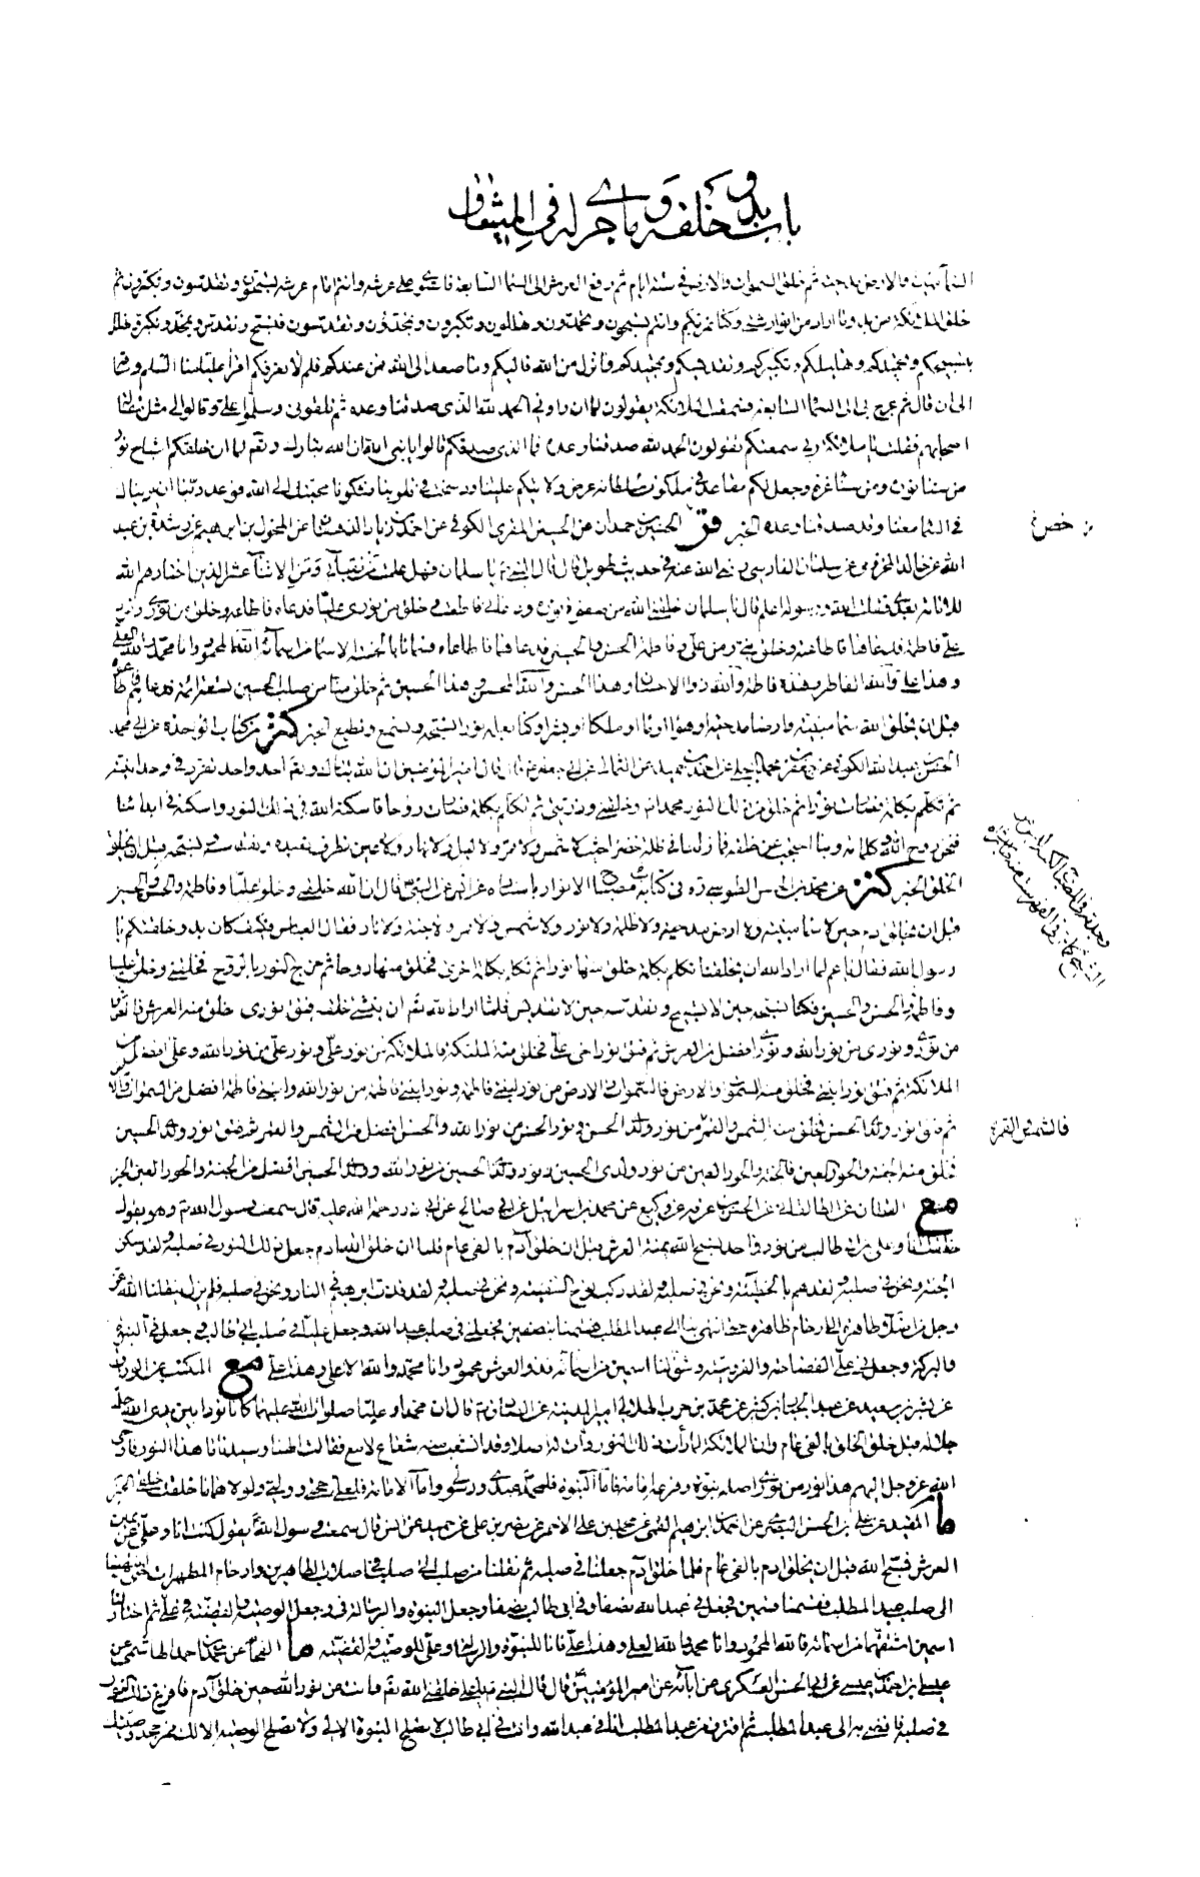 باب بدو خلقه وما جرى له في الميثاق
والارض مدحية ثم خلق السموات والارض في ستة ايام ثم رفع العرش الى السماء السابعة فاستوى على عرشه وانتم امام عرشه تسبحون وتقدسون وتكبرون ثم
خلق الملائكة من بدو ما اراد من انوار شتى وكنا نمر بكم وانتم تسبحون وتحمدون وتهللون وتكبرون وتمجدون وتقدسون فنسبح ونقدس ونمجد ونكبر ونهلل
بتسبيحكم وتحميدكم وتهليلكم وتكبيركم وتقديسكم وتمجيدكم فما نزل من الله فاليكم وما صعد الى الله فمن عندكم فلم لا نعرفكم اقرا عليا منا السلم وساق
الى ان قال ثم عرج بي الى السماء السابعة فسمعت الملائكة يقولون لما ان راوني الحمد لله الذي صدقنا وعده ثم تلقوني وسلموا علي وقالوا لي مثل مقالة
اصحابهم فقلت يا ملائكة ربي سمعتكم تقولون الحمد لله الذي صدقنا وعده فما الذي صدقكم قالوا يا نبي الله ان الله تبارك وتعم لما ان خلقكم اشباح نور
من سناء نوره ومن سناء عزه وجعل لكم مقاعد في ملكوت سلطانه عرض ولايتكم علينا ورسخت في قلوبنا فشكونا محبتك الى الله فوعد ربنا ان يريناك
في السماء معنا وقد صدقنا وعده الخبر فق الحسين بن حمدان عن الحسين المقري الكوفي عن احمد بن زياد الدهقان عن المخول بن ابراهيم عن رشدة بن عبد
الله عن خالد المخزومي عن سلمان الفارسي رضي الله عنه في حديث طويل قال قال النبي ص يا سلمان فهل علمت من نقبائي ومن الاثنا عشر الذين اختارهم الله
للامامة بعدي فقلت الله ورسوله اعلم قال يا سلمان خلقني الله من صفوة نوره ودعاني فاطعت وخلق من نوري عليا فدعاه فاطاعه وخلق من نوري ونور
علي فاطمة فدعاها فاطاعته وخلق مني ومن علي وفاطمة الحسن والحسين فدعاهما فاطاعاه فسمانا بالخمسة الاسماء من اسمائه الله المحمود وانا محمد والله العلي
وهذا علي والله الفاطر وهذه فاطمة والله ذو الاحسان وهذا الحسن والله المحسن وهذا الحسين ثم خلق منا من صلب الحسين تسعة ائمة فدعاهم فاطاعوه
قبل ان يخلق الله سماء مبنية وارضا مدحية او هواء او ماء او ملكا او بشرا وكنا بعلمه نورا نسبحه ونسمع ونطيع الخبر كنز من كتاب الواحدة عن ابي محمد
الحسن بن عبد الله الكوفي عن جعفر بن محمد البجلي عن احمد بن حميد عن الثمالي عن ابي جعفر ع قال قال امير المؤمنين ان الله تبارك وتعم احد واحد تفرد في وحدانيته
ثم تكلم بكلمة فصارت نورا ثم خلق من ذلك النور محمدا ص وخلقني وذريتي ثم تكلم بكلمة فصارت روحا فاسكنه الله في ذلك النور واسكنه في ابداننا
فنحن روح الله وكلماته وبنا احتجب عن خلقه فما زلنا في ظلة خضراء حيث لا شمس ولا قمر ولا ليل ولا نهار ولا عين تطرف نعبده ونقدسه ونسبحه قبل ان يخلق
الخلق الخبر كنز عن محمد بن الحسن الطوسي ره في كتابه مصباح الانوار باسناده عن انس عن النبي ص قال ان الله خلقني وخلق عليا وفاطمة والحسن والحسين
قبل ان يخلق ادم حين لا سماء مبنية ولا ارض مدحية ولا ظلمة ولا نور ولا شمس ولا قمر ولا جنة ولا نار فقال العباس فكيف كان بدو خلقكم يا
رسول الله فقال يا عم لما اراد الله ان يخلقنا تكلم بكلمة خلق منها نورا ثم تكلم بكلمة اخرى فخلق منها روحا ثم مزج النور بالروح فخلقني وخلق عليا
وفاطمة والحسن والحسين فكنا نسبحه حين لا تسبيح ونقدسه حين لا تقديس فلما اراد الله تعم ان ينشئ خلقه فتق نوري فخلق منه العرش فالعرش
من نوري ونوري من نور الله ونوري افضل من العرش ثم فتق نور اخي علي فخلق منه الملئكة فالملائكة من نور علي ونور علي من نور الله وعلي افضل من
الملائكة ثم فتق نور ابنتي فخلق منه السموات والارض فالسموات والارض من نور ابنتي فاطمة ونور ابنتي فاطمة من نور الله وابنتي فاطمة افضل من السموات والارض
ثم فتق نور ولدي الحسن فخلق منه الشمس والقمر من نور ولدي الحسن ونور الحسن من نور الله والحسن افضل من الشمس والقمر ثم فتق نور ولدي الحسين
فخلق منه الجنة والحور العين فالجنة والحور العين من نور ولدي الحسين ونور ولدي الحسين من نور الله وولدي الحسين افضل من الجنة والحور العين الخبر
مع القطان عن الطالقاني عن الحسن بن عرفة عن وكيع عن محمد بن اسرائيل عن ابي صالح عن ابي ذر رحمة الله عليه قال سمعت رسول الله ص وهو يقول
خلقت انا وعلي بن ابي طالب من نور واحد نسبح الله يمنة العرش قبل ان خلق آدم بالفي عام فلما ان خلق الله ادم جعل ذلك النور في صلبه ولقد سكن
الجنة ونحن في صلبه ولقد هم بالخطيئة ونحن في صلبه ولقد ركب نوح السفينة ونحن في صلبه ولقد قذف ابرهيم في النار ونحن في صلبه فلم يزل ينقلنا الله عز
وجل من اصلاب طاهرة الى ارحام طاهرة حتى انتهى بنا الى عبد المطلب فقسمنا بنصفين فجعلني في صلب عبد الله وجعل عليا في صلب ابي طالب وجعل في النبوة
والبركة وجعل في علي الفصاحة والفروسية وشق لنا اسمين من اسمائه فذو العرش محمود وانا محمد والله الاعلى وهذا علي مع المكتب عن الوراق
عن بشر بن سعيد عن عبد الجبار بن كثير عن محمد بن حرب الهلالي امير المدينة عن الصادق ع قال ان محمدا وعليا صلوات الله عليهما كانا نورا بين يدي الله جل
جلاله قبل خلق الخلق بالفي عام وان الملائكة لما رأت ذلك النور رأت له اصلا وقد انشعب منه شعاع لامع فقالت الهنا وسيدنا ما هذا النور فاوحى
الله عز وجل اليهم هذا نور من نوري اصله نبوة وفرعه امامة فاما النبوة فلمحمد عبدي ورسولي واما الامامة فلعلي حجتي ووليي ولولاهما ما خلقت خلقي الخبر
ما المفيد عن علي بن الحسن البصري عن احمد بن ابرهيم القمي عن محمد بن علي الاحمر عن نصر بن علي عن حميد عن انس قال سمعت رسول الله ص يقول كنت انا وعلي عن يمين
العرش نسبح الله قبل ان يخلق ادم بالفي عام فلما خلق آدم جعلنا في صلبه ثم نقلنا من صلب الى صلب في اصلاب الطاهرين وارحام المطهرات حتى انتهينا
الى صلب عبد المطلب فقسمنا قسمين فجعل في عبد الله نصفا وفي ابي طالب نصفا وجعل النبوة والرسالة في وجعل الوصية والقضية في علي ثم اختار لنا
اسمين اشتقهما من اسمائه فالله المحمود وانا محمد والله العلي وهذا علي فانا للنبوة والرسالة وعلي للوصية والقضية ما الفحام عن عمه احمد الهاشمي عن
عيسى بن احمد بن عيسى عن ابي الحسن العسكري عن ابائه عن امير المؤمنين ع قال قال النبي ص يا علي خلقني الله تعم وانت من نور الله حين خلق آدم فافرغ ذلك النور
في صلبه فافضى به الى عبد المطلب ثم افترق من عبد المطلب انا في عبد الله وانت في ابي طالب لا تصلح النبوة الا لي ولا تصلح الوصية الا لك فمن جحد وصيتك
خص
فالشمس والقمر